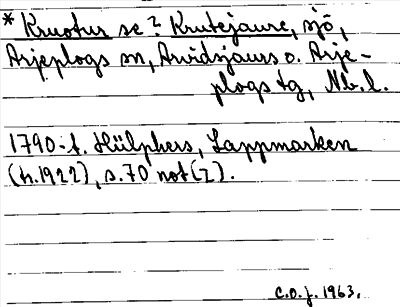 * Kruotur se? Krutejaure, sjö,
Arjeplogs sn, Arvidsjaurs o. Arje-
plogs tg, Nb. l.
1790-t. Hülphers, Lappmarken
(tr. 1922), s. 70 not (z).
C.O.J. 1963.